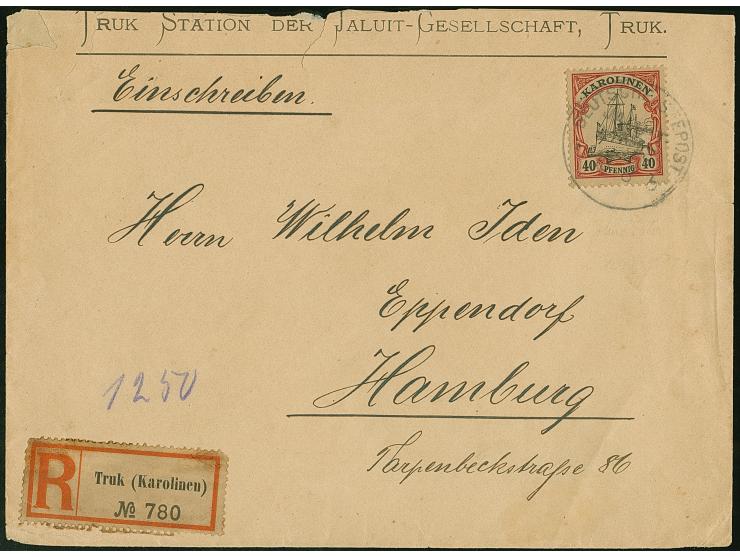 TRUK STATION DER JALUIT-GESELLSCHAFT, TRUK.
Einschreiben.
KAROLINEN
40 PFENNIG 40
Herrn Wilhelm Iden
Eppendorf
Hamburg
Tarpenbeckstraße 86
1250
R
Truk (Karolinen)
№ 780